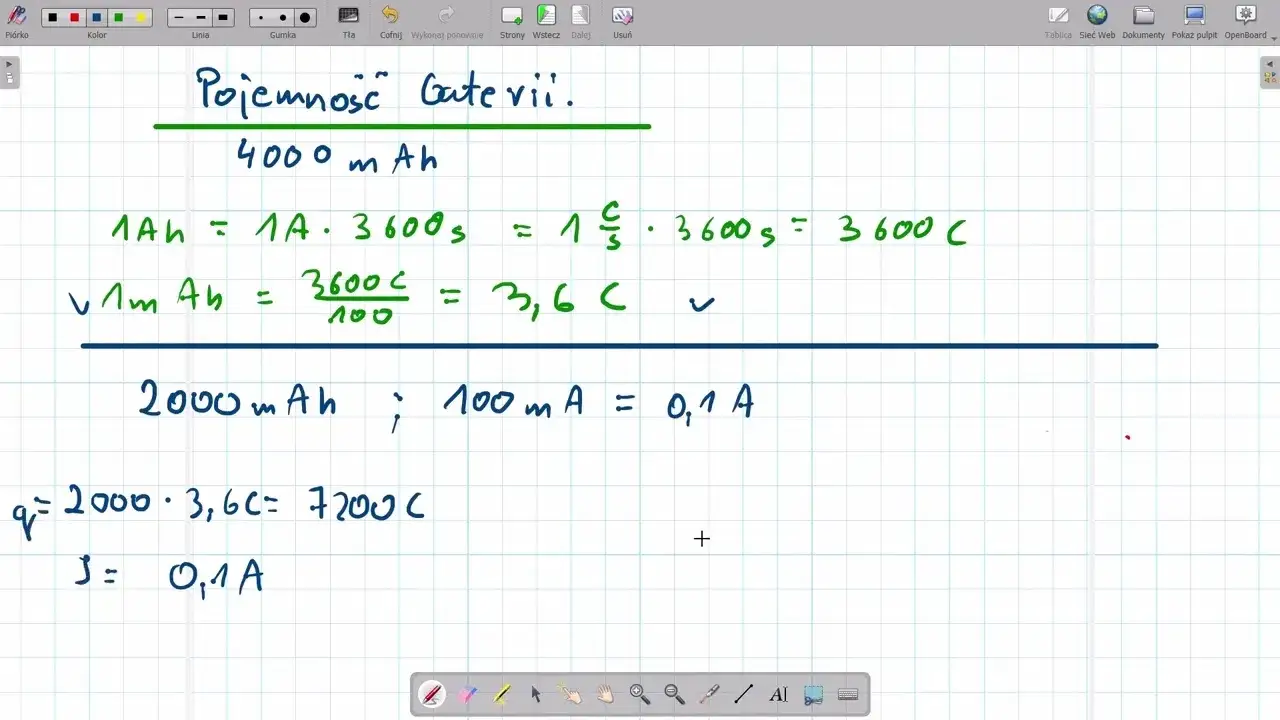 Piórko Kolor Linia Gumka Tła Cofnij Wykonaj ponownie Strony Wstecz Dalej Usuń Tablica Sieć Web Dokumenty Pokaż pulpit OpenBoard
Pojemność baterii.
4000 mAh
1Ah = 1A · 3600s = 1 C/s · 3600s = 3600C
1mAh = 3600C/100 = 3,6 C
2000mAh ; 100mA = 0,1A
q= 2000 · 3,6C= 7200C
J= 0,1A
AI